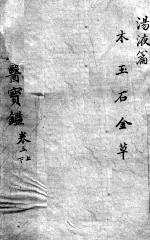 湯液篇
木玉石金草
醫寶鑑 卷三 上下